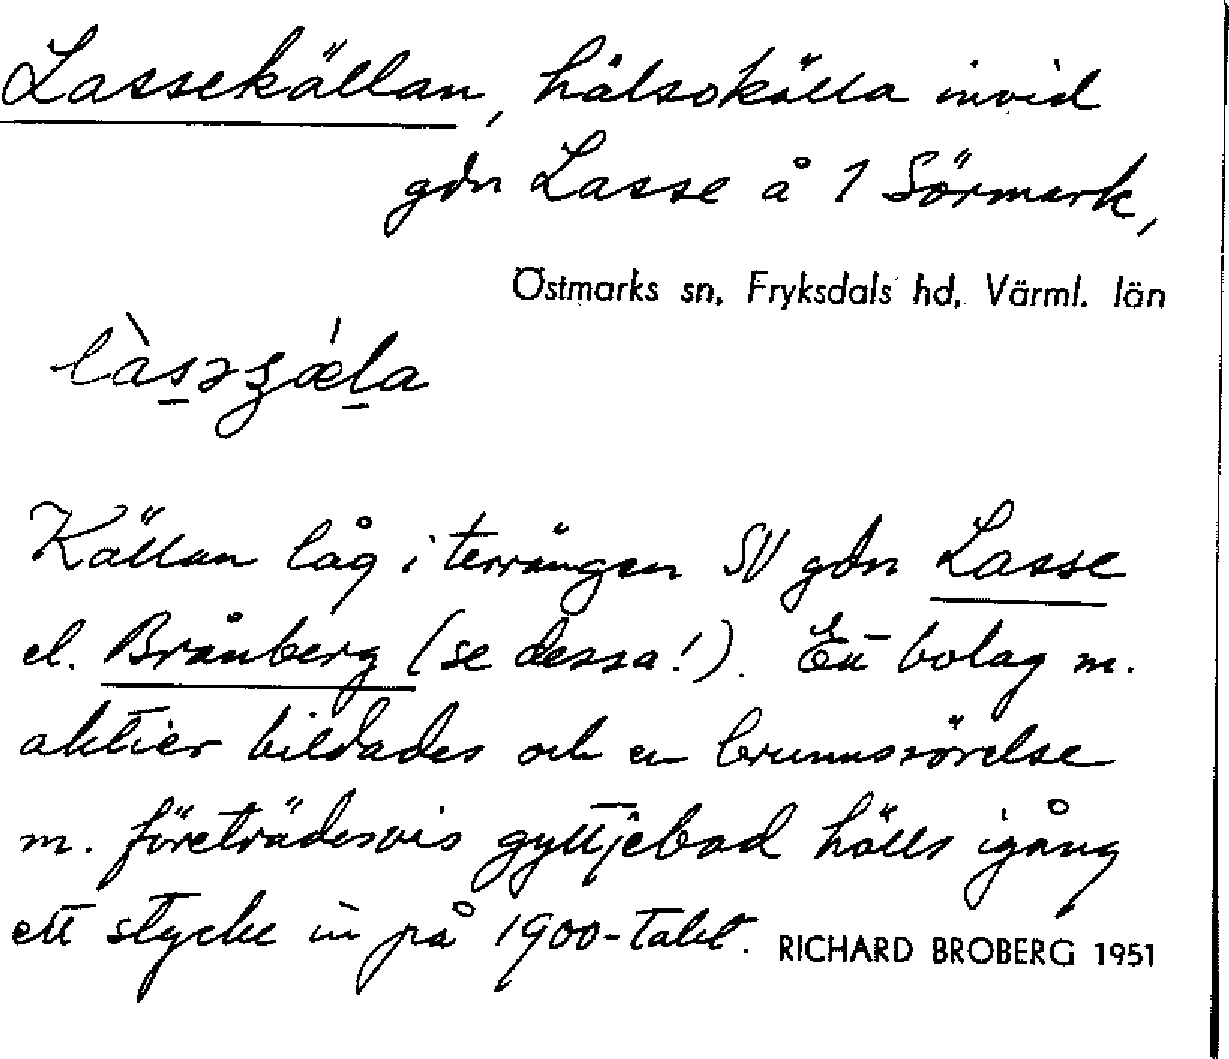 Lassekällan, hälsokälla invid
gdn Lasse å 1 Sörmark,
Östmarks sn, Fryksdals hd, Värml. län
Källan låg i terrängen SV gdn Lasse
el. Brånberg (se dessa!). Ett bolag m.
aktier bildades och en brunnsrörelse
m. företrädesvis gyttjebad hölls igång
ett stycke in på 1900-talet. RICHARD BROBERG 1951